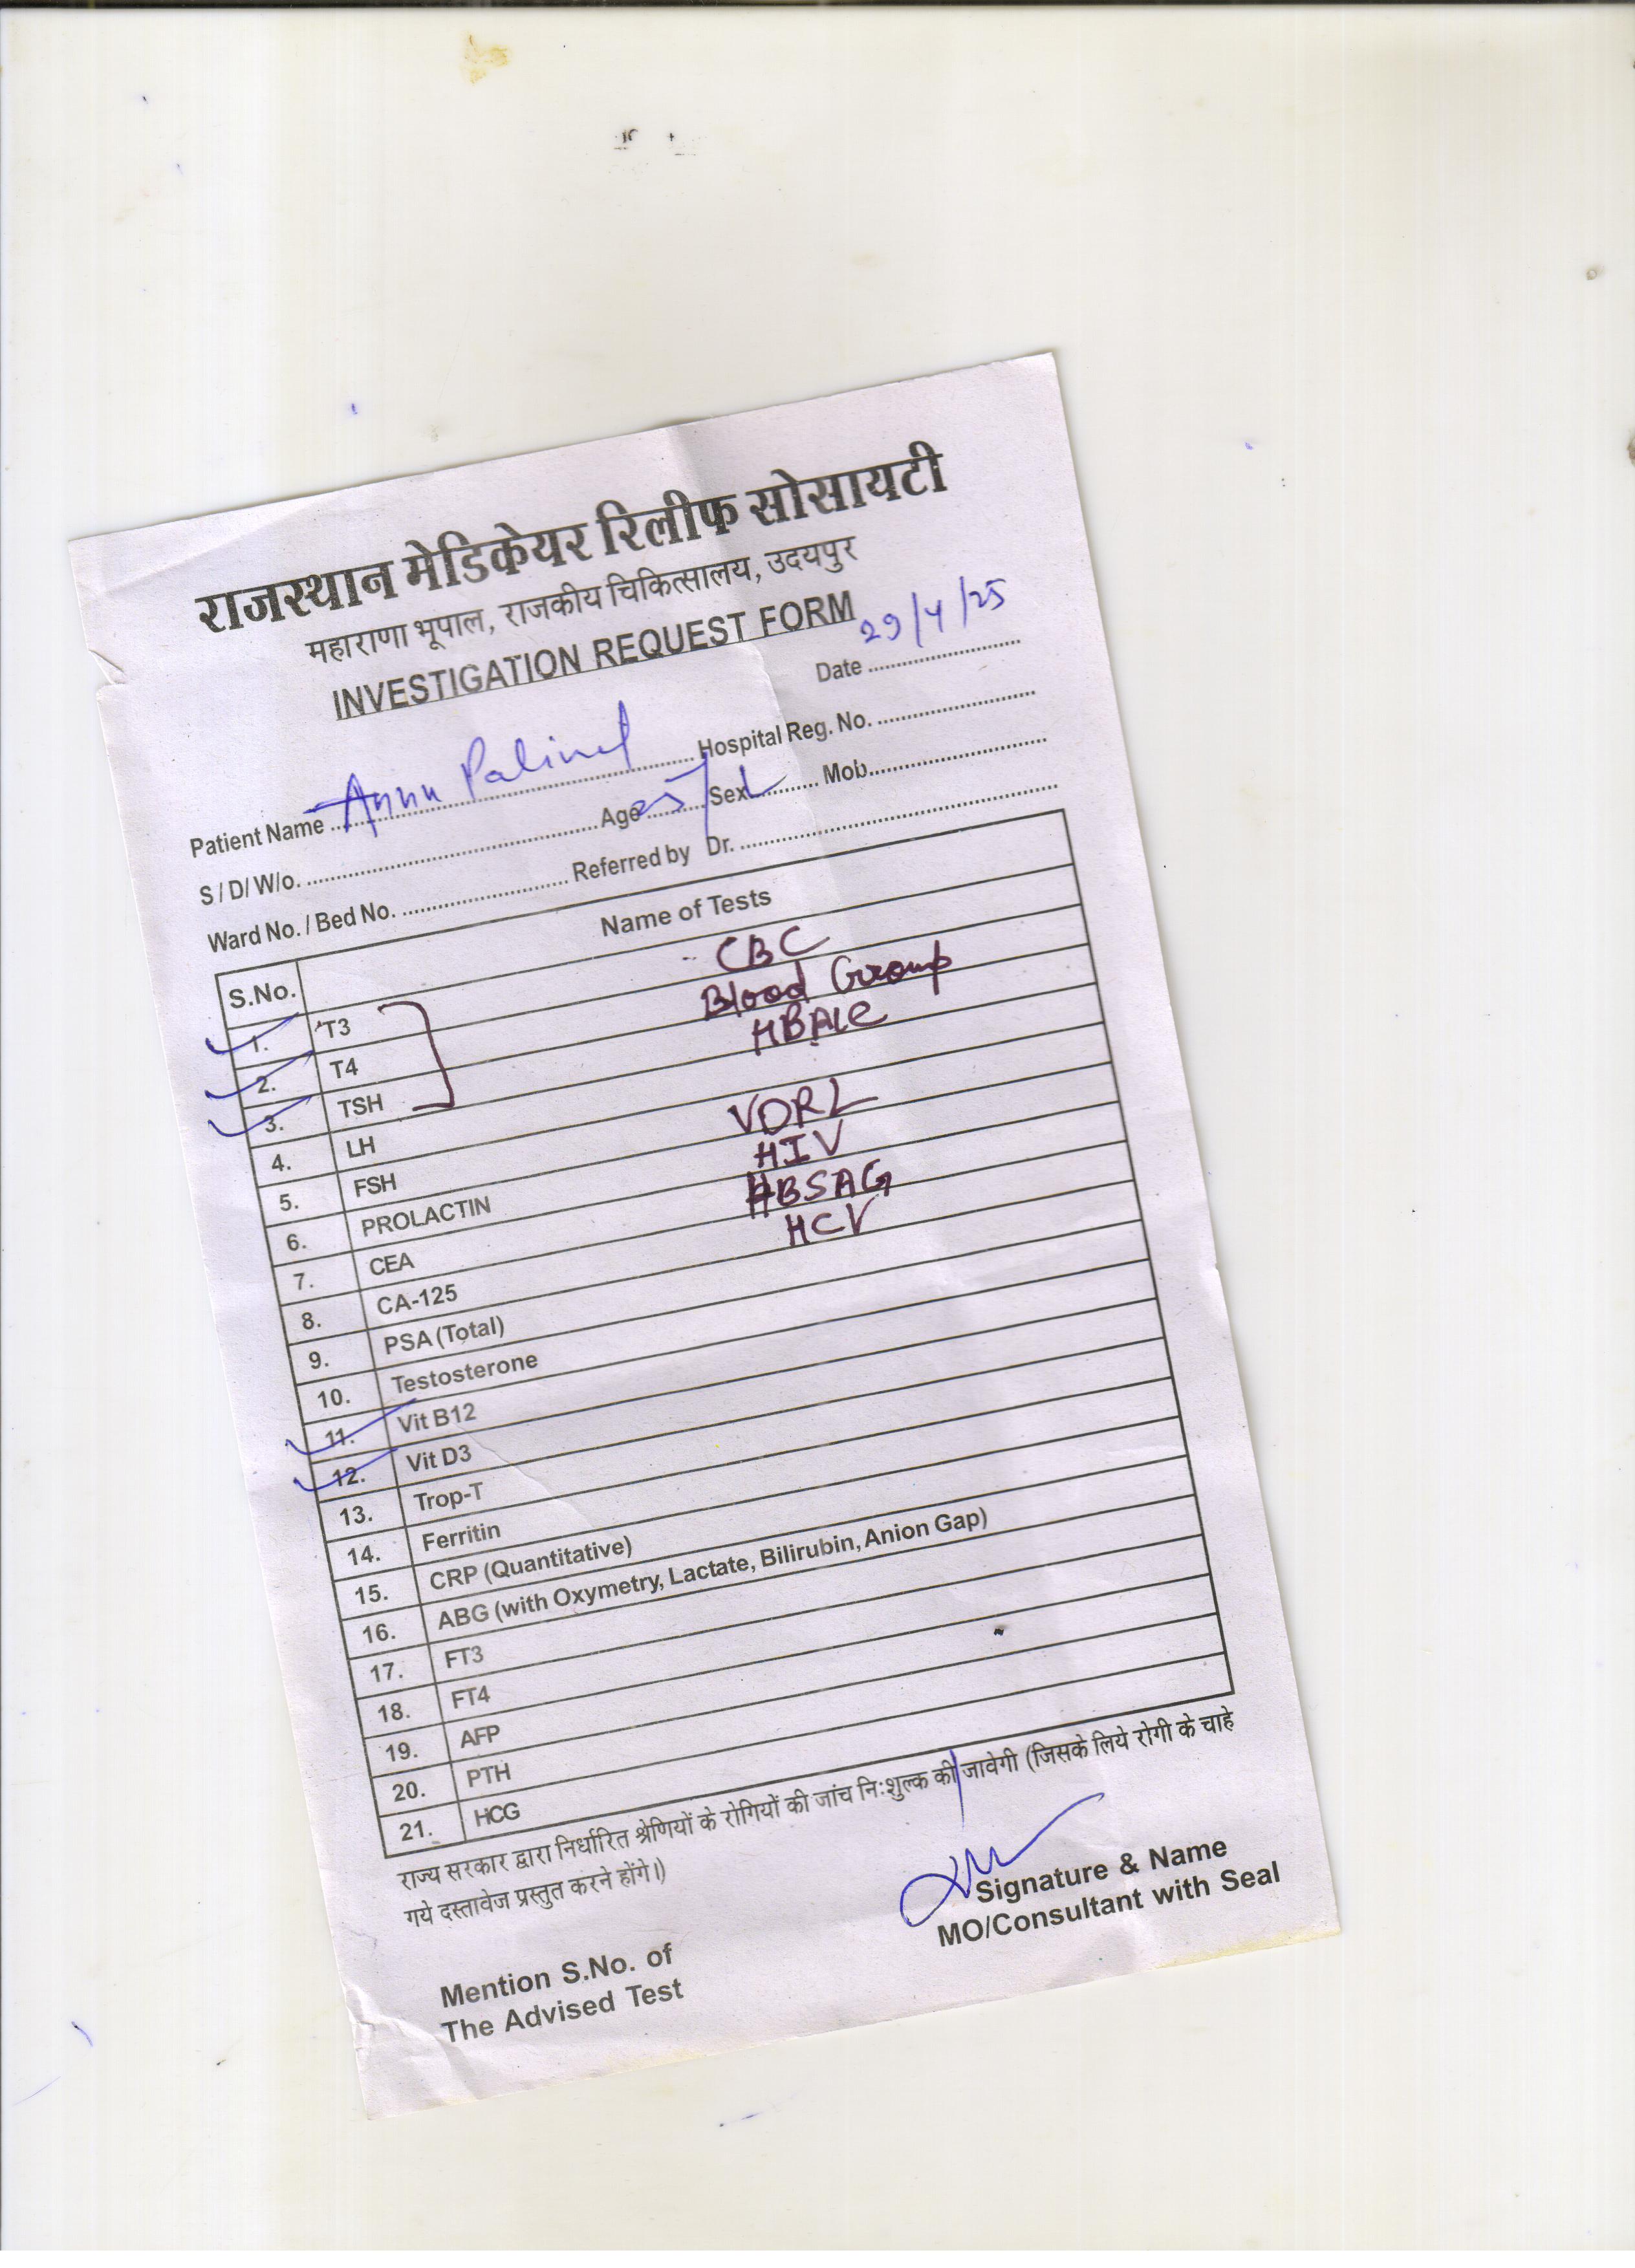 राजस्थान मेडिकेयर रिलीफ सोसायटी
महाराणा भूपाल, राजकीय चिकित्सालय, उदयपुर
INVESTIGATION REQUEST FORM
Date 29/4/25
Patient Name Annu Hospital Reg. No.
S / D/ W/o. Age Sex Mob.
Ward No. / Bed No. Referred by Dr.
S.No. Name of Tests
1. T3 CBC
2. T4 Blood Group
3. TSH HBA1C
4. LH
5. FSH VDRL
6. PROLACTIN HIV
7. CEA HBSAG
8. CA-125 HCV
9. PSA (Total)
10. Testosterone
11. Vit B12
12. Vit D3
13. Trop-T
14. Ferritin
15. CRP (Quantitative)
16. ABG (with Oxymetry, Lactate, Bilirubin, Anion Gap)
17. FT3
18. FT4
19. AFP
20. PTH
21. HCG
राज्य सरकार द्वारा निर्धारित श्रेणियों के रोगियों की जांच नि:शुल्क की जावेगी (जिसके लिये रोगी के चाहे
गये दस्तावेज प्रस्तुत करने होंगे।)
Signature & Name
MO/Consultant with Seal
Mention S.No. of
The Advised Test